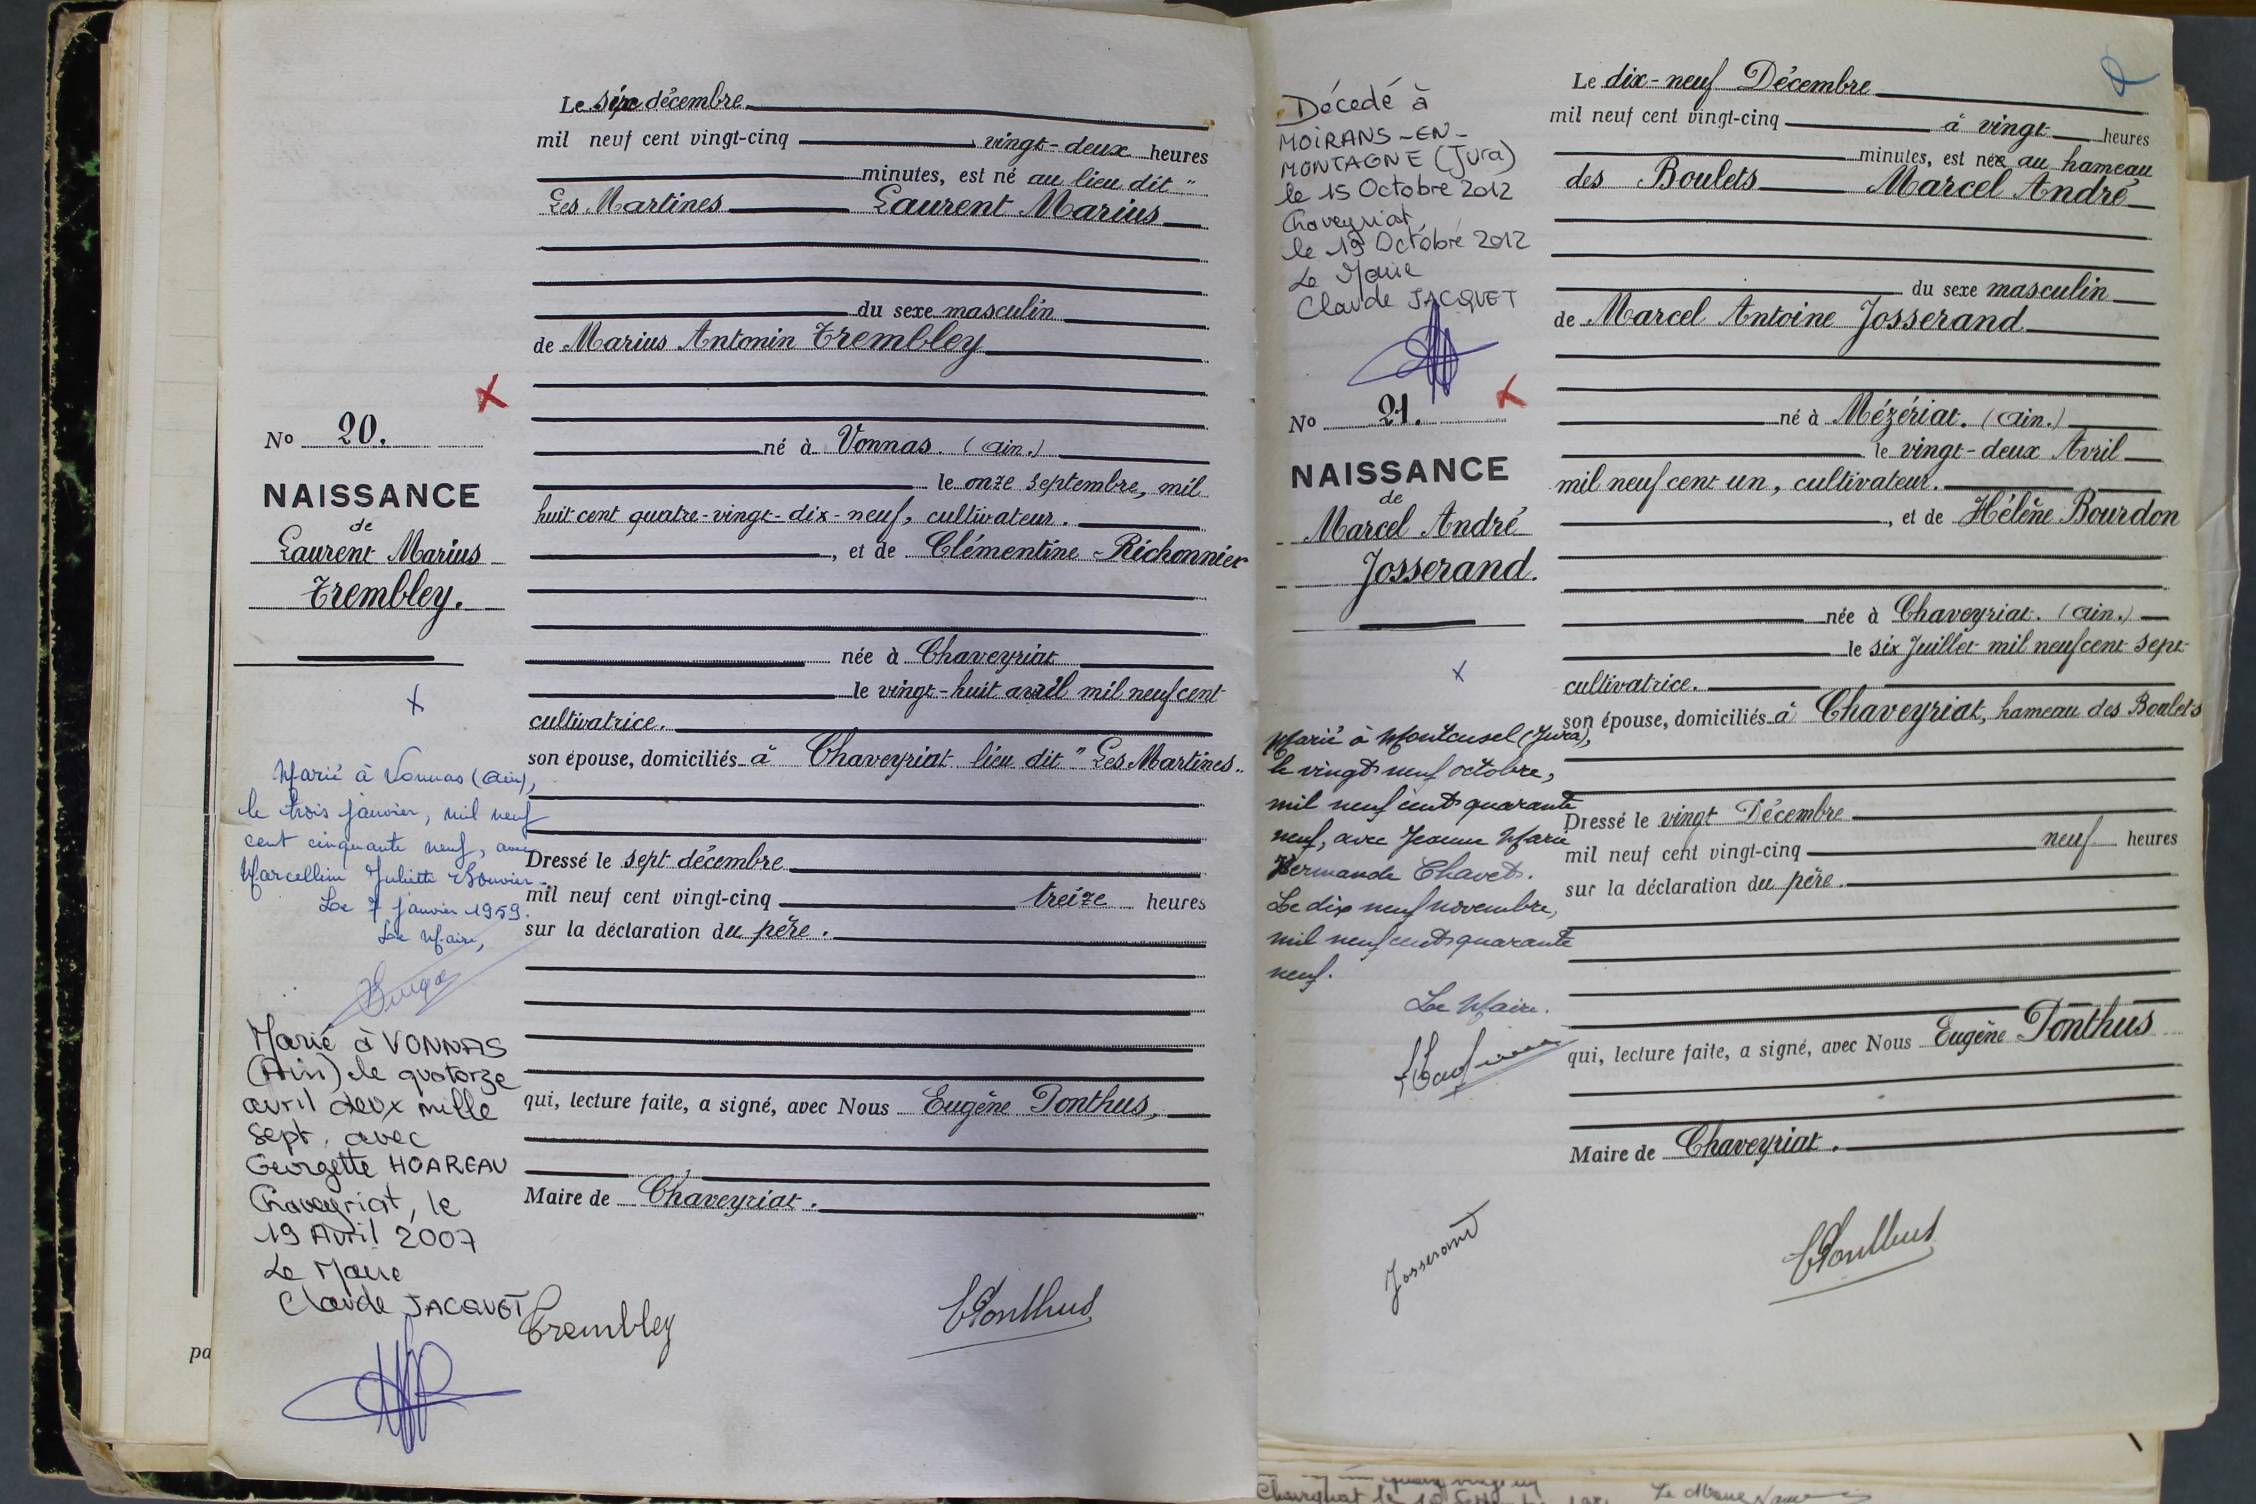 Le six décembre
mil neuf cent vingt-cinq vingt-deux heures
minutes, est né au lieu dit "
Les Martines Laurent Marius
du sexe masculin
de Marius Antonin Trembley
né à Vonnas. (Ain.)
le onze septembre, mil
huit cent quatre-vingt-dix-neuf, cultivateur.
, et de Clémentine Richonnier
née à Chaveyriat
le vingt-huit avril mil neuf cent
cultivatrice.
son épouse, domiciliés à Chaveyriat lieu dit " Les Martines "
Dressé le sept décembre
mil neuf cent vingt-cinq treize heures
sur la déclaration du père.
qui, lecture faite, a signé, avec Nous Eugène Ponthus,
Maire de Chaveyriat.
Trembley
EPonthus
No 20.
NAISSANCE
de
Laurent Marius
Trembley.
Marié à Vonnas (Ain),
le trois janvier, mil neuf
cent cinquante neuf, avec
Juliette
Le 7 janvier 1959.
Le Maire,
Marié à VONNAS
(Ain) le quatorze
avril deux mille
sept, avec
Georgette HOAREAU
Chaveyriat, le
19 Avril 2007
Le Maire
Claude JACQUET
pa
Décedé à
MOIRANS-EN-
MONTAGNE (Jura)
le 15 Octobre 2012
Chaveyriat
le 19 Octobre 2012
Le Maire
Claude JACQUET
No 21.
NAISSANCE
de
Marcel André
Josserand.
Marié à Montcusel (Jura),
le vingt neuf octobre,
mil neuf cent quarante
neuf, avec Jeanne Marie
Germande Chavet.
Le dix neuf novembre,
mil neuf cent quarante
neuf.
Le Maire.
Le dix-neuf Décembre
mil neuf cent vingt-cinq à vingt heures
minutes, est né au hameau
des Boulets Marcel André
du sexe masculin
de Marcel Antoine Josserand
né à Mézériat. (Ain.)
le vingt-deux Avril
mil neuf cent un, cultivateur.
, et de Hélène Bourdon
née à Chaveyriat. (Ain.)
le six Juillet mil neuf cent sept
cultivatrice.
son épouse, domiciliés à Chaveyriat, hameau des Boulets
Dressé le vingt Décembre
mil neuf cent vingt-cinq neuf heures
sur la déclaration du père.
qui, lecture faite, a signé, avec Nous Eugène Ponthus
Maire de Chaveyriat.
Josserand
EPonthus